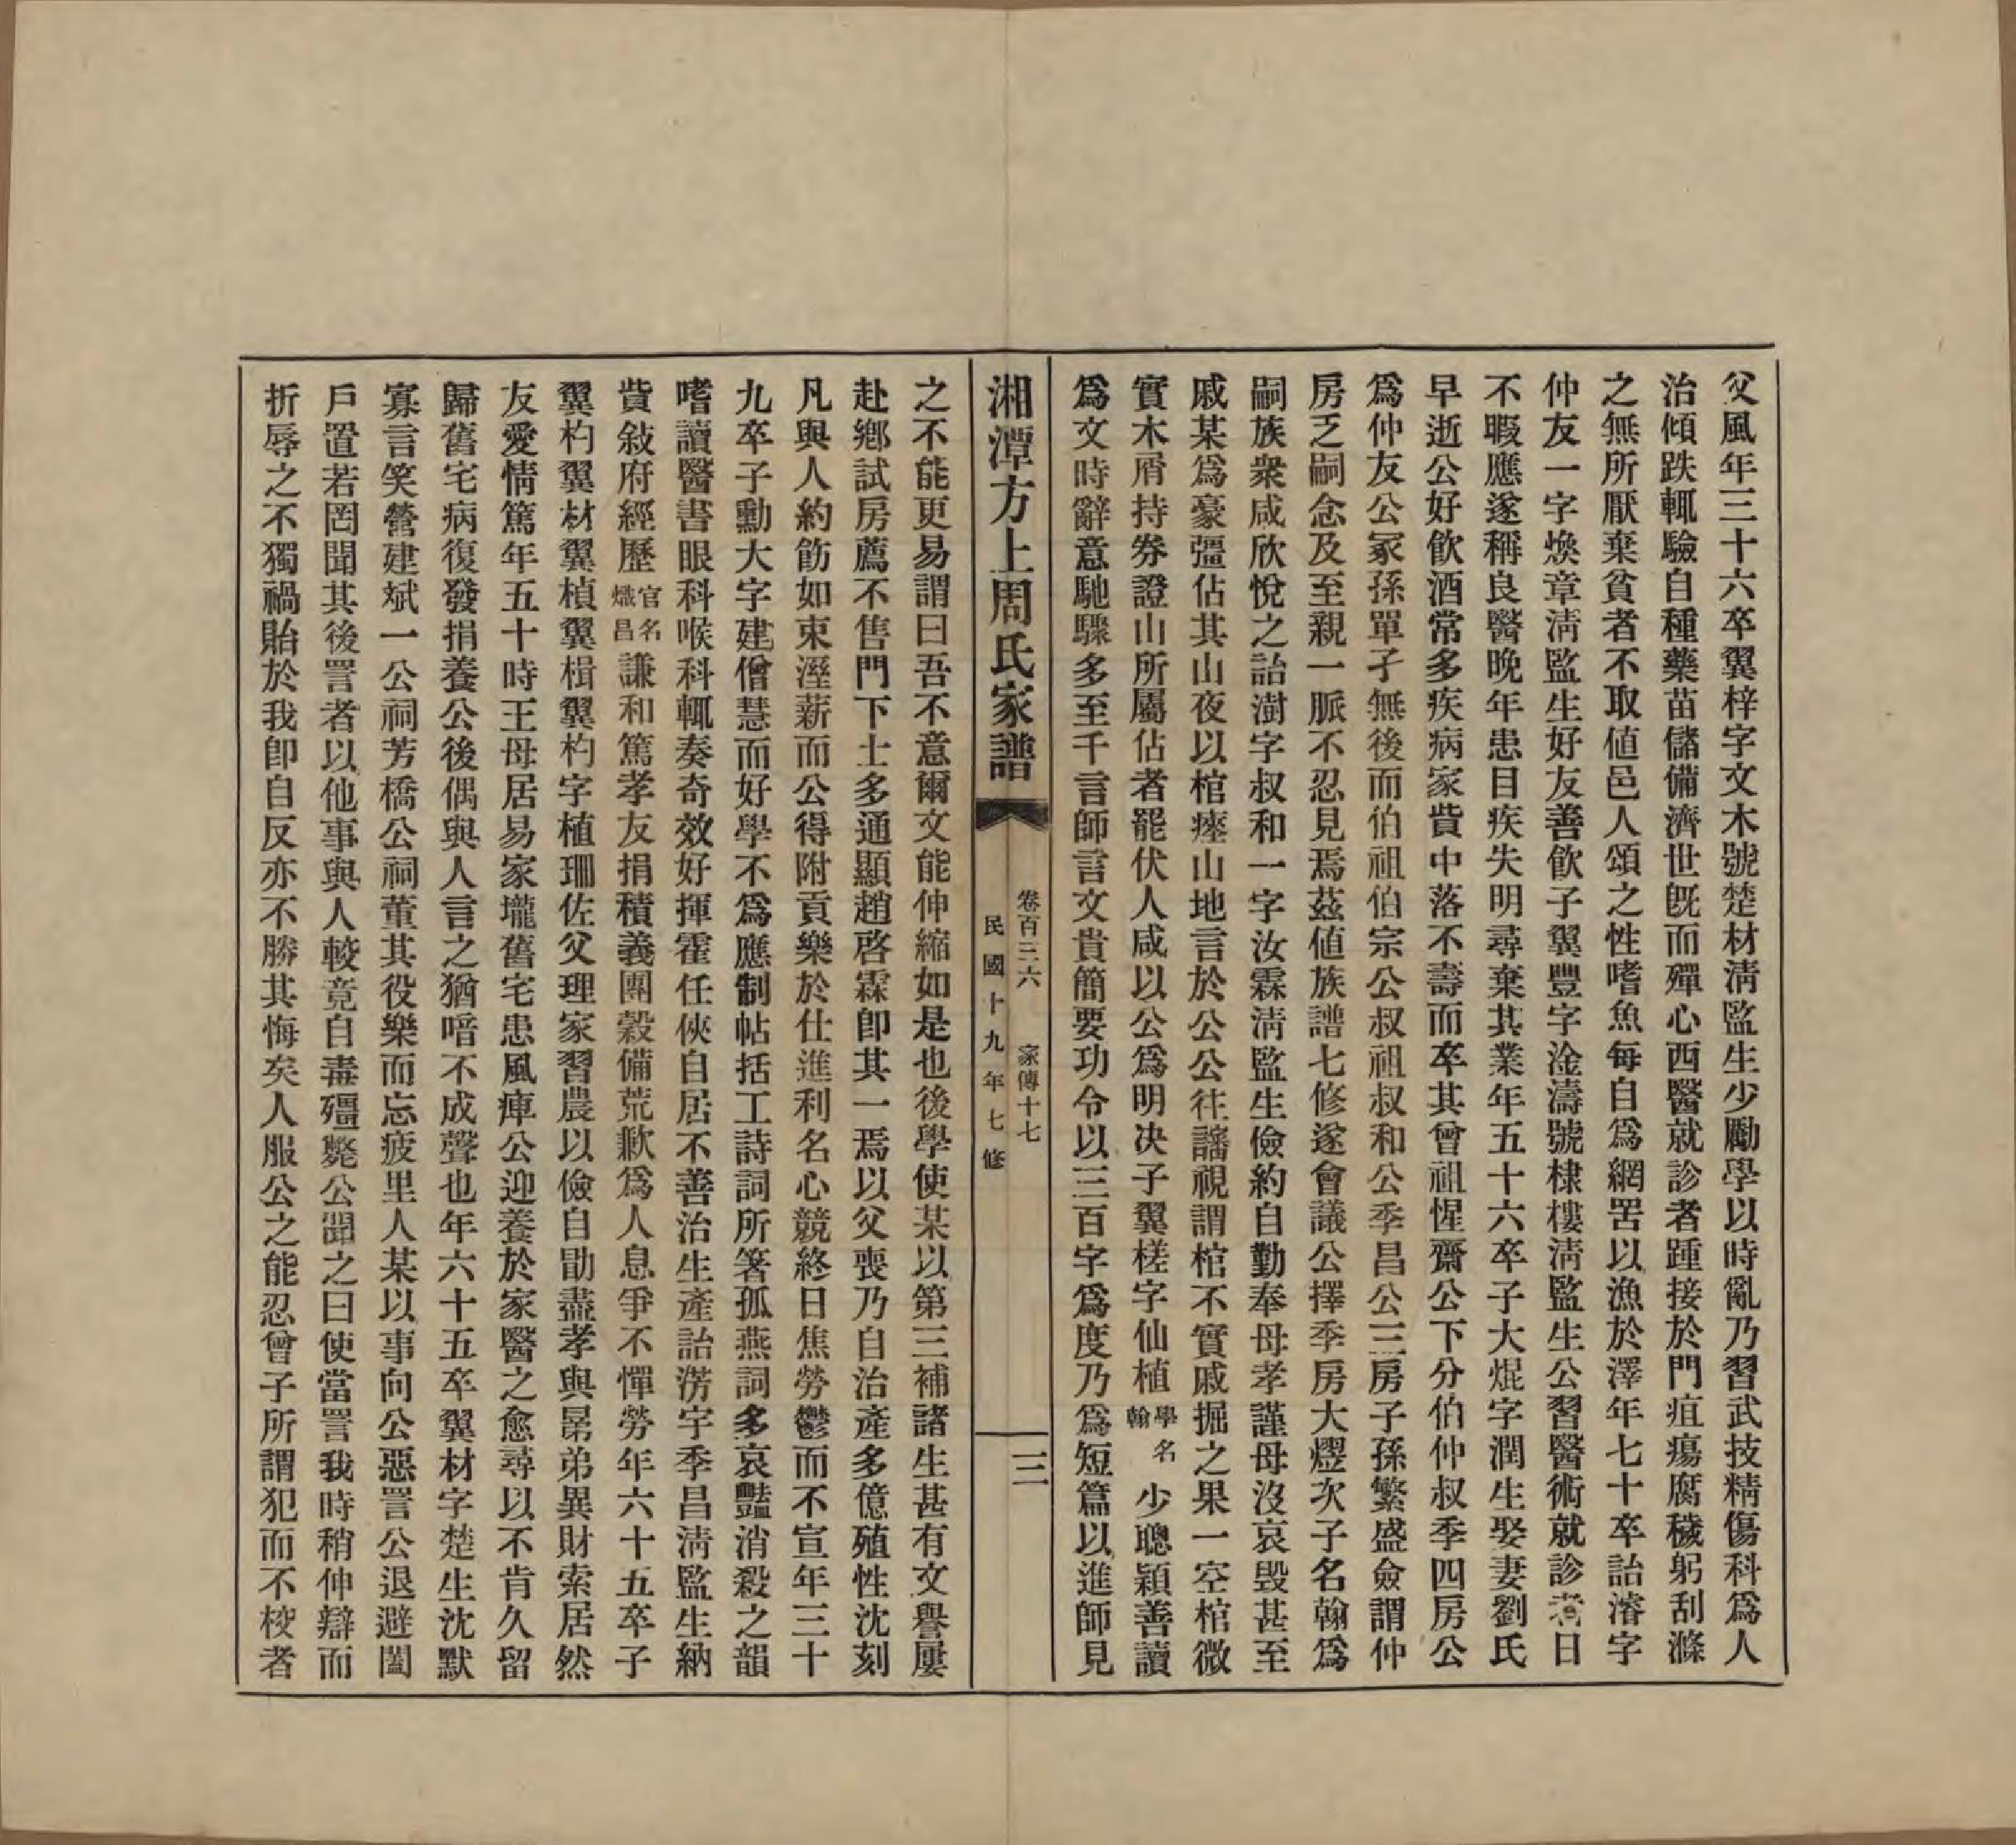 父風年三十六卒翼梓字文木號楚材淸監生少勵學以時亂乃習武技精傷科爲人
治傾跌輒驗自種藥苗儲備濟世旣而殫心西醫就診者踵接於門疽瘍腐穢躬刮滌
之無所厭棄貧者不取値邑人頌之性嗜魚每自爲網罟以漁於澤年七十卒詒濬字
仲友一字煥章淸監生好友善飮子翼豐字淦濤號棣樓淸監生公習醫術就診者日
不暇應遂稱良醫晚年患目疾失明尋棄其業年五十六卒子大焜字潤生娶妻劉氏
早逝公好飮酒常多疾病家貲中落不壽而卒其曾祖惺齋公下分伯仲叔季四房公
爲仲友公冢孫單孑無後而伯祖伯宗公叔祖叔和公季昌公三房子孫繁盛僉謂仲
房乏嗣念及至親一脈不忍見焉茲値族譜七修遂會議公擇季房大熤次子名翰爲
嗣族衆咸欣悅之詒澍字叔和一字汝霖淸監生儉約自勤奉母孝謹母沒哀毀甚至
戚某爲豪彊佔其山夜以棺瘞山地言於公公往譸視謂棺不實戚掘之果一空棺微
實木屑持劵證山所屬佔者罷伏人咸以公爲明决子翼槎字仙植學名翰少聰穎善讀
爲文時辭意馳驟多至千言師言文貴簡要功令以三百字爲度乃爲短篇以進師見
湘潭方上周氏家譜
卷百三六　家傳十七
民國十九年七修
三
之不能更易謂曰吾不意爾文能伸縮如是也後學使某以第三補諸生甚有文譽屢
赴鄕試房薦不售門下士多通顯趙啓霖卽其一焉以父喪乃自治產多億殖性沈刻
凡與人約飭如束溼薪而公得附貢樂於仕進利名心競終日焦勞鬱而不宣年三十
九卒子勳大字建僧慧而好學不爲應制帖括工詩詞所箸孤燕詞多哀豔消殺之韻
嗜讀醫書眼科喉科輒奏奇效好揮霍任俠自居不善治生產詒澇字季昌淸監生納
貲敍府經歷官名熾昌謙和篤孝友捐積義團穀備荒歉爲人息爭不憚勞年六十五卒子
翼杓翼材翼楨翼楫翼杓字植珊佐父理家習農以儉自勖盡孝與晜弟異財索居然
友愛情篤年五十時王母居易家壠舊宅患風痺公迎養於家醫之愈尋以不肯久留
歸舊宅病復發捐養公後偶與人言之猶喑不成聲也年六十五卒翼材字楚生沈默
寡言笑營建斌一公祠芳橋公祠董其役樂而忘疲里人某以事向公惡詈公退避闔
戶置若罔聞其後詈者以他事與人較竟自毒殭斃公聞之曰使當詈我時稍伸辯而
折辱之不獨禍貽於我卽自反亦不勝其悔矣人服公之能忍曾子所謂犯而不校者